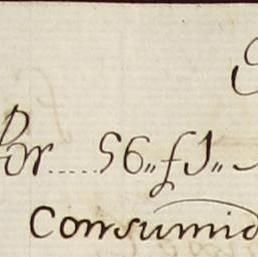 Por.....56,,f1,,
Consumid